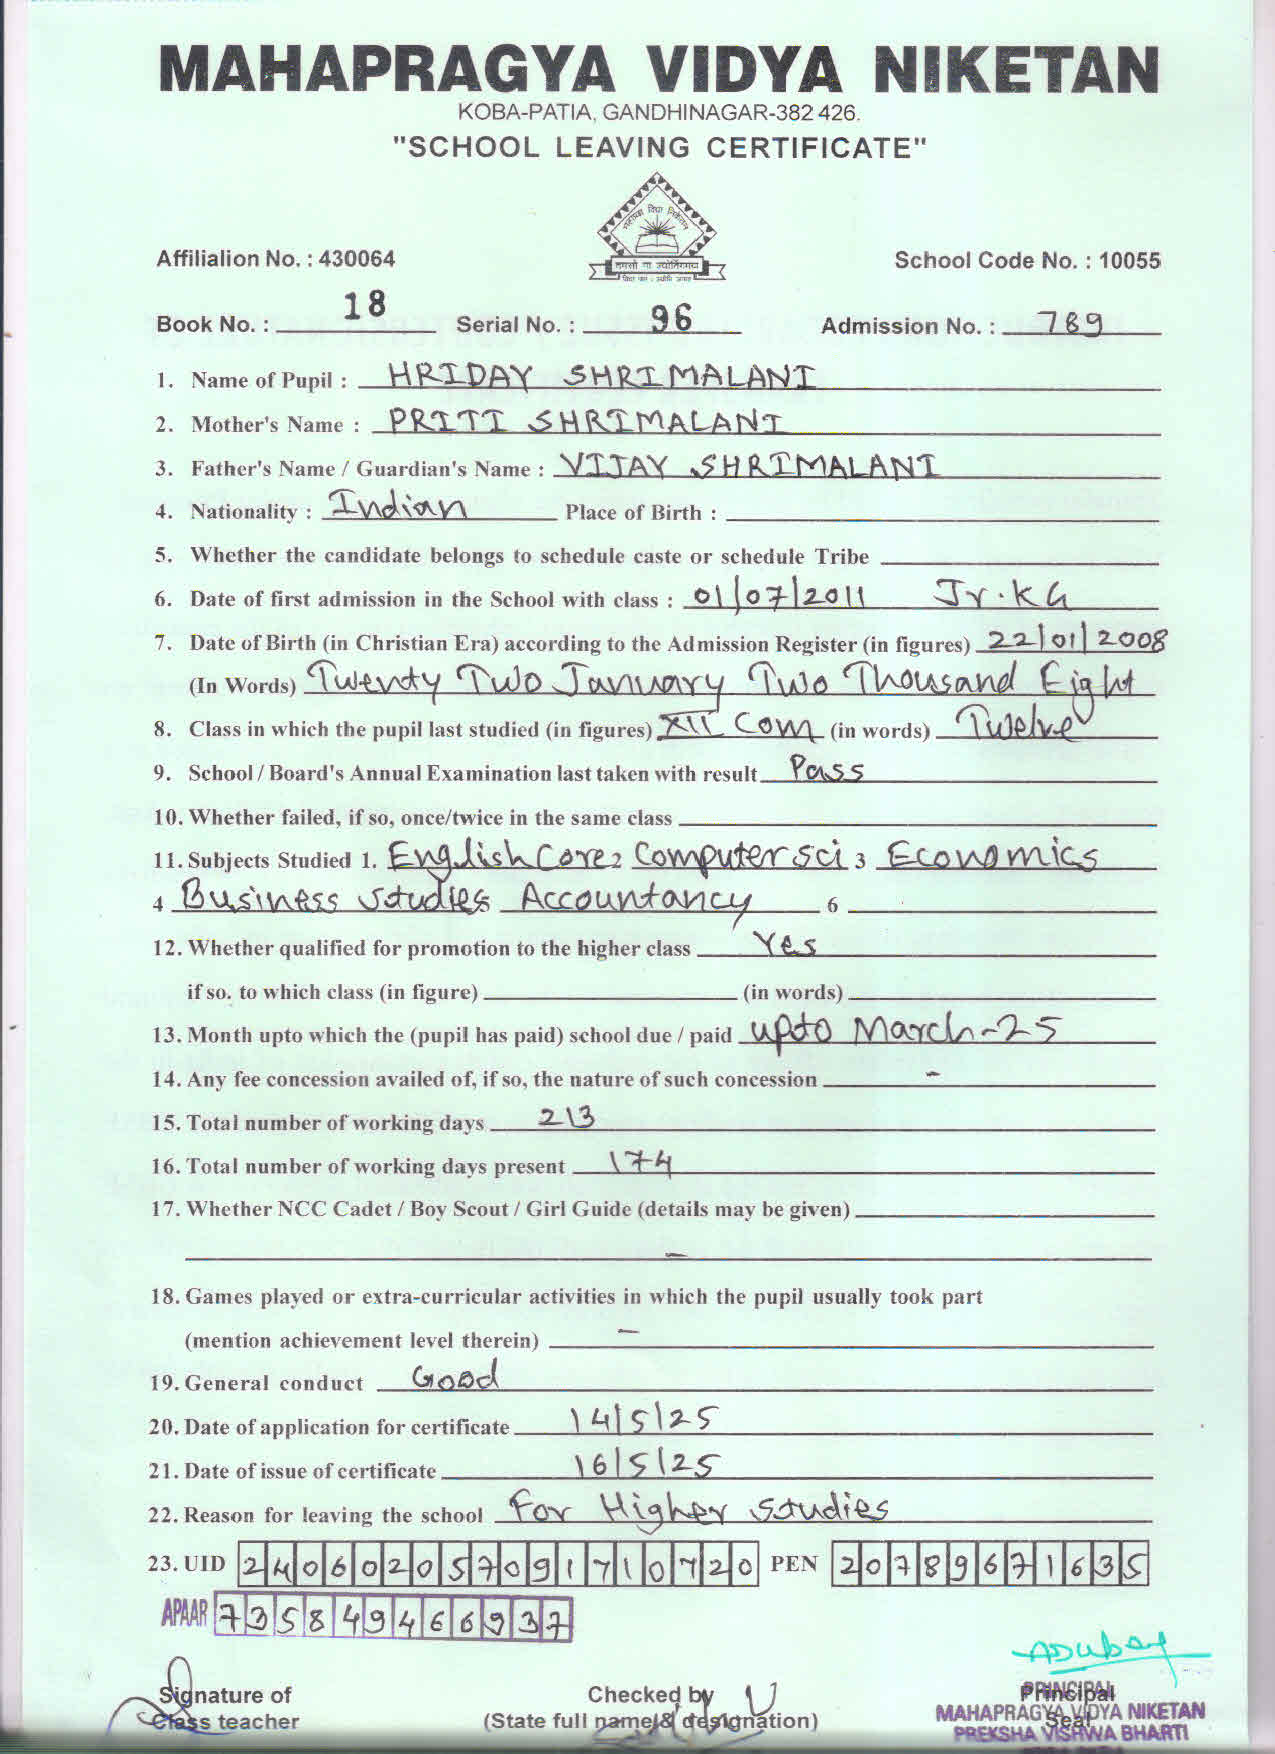 MAHAPRAGYA VIDYA NIKETAN
KOBA-PATIA, GANDHINAGAR-382 426.
"SCHOOL LEAVING CERTIFICATE"
महाप्रज्ञ विद्या निकेतन
तमसो मा ज्योतिर्गमय
Affilialion No. : 430064 School Code No. : 10055
Book No. : 18 Serial No. : 96 Admission No. : 789
1. Name of Pupil : HRIDAY SHRIMALANI
2. Mother's Name : PRITI SHRIMALANI
3. Father's Name / Guardian's Name : VIJAY SHRIMALANI
4. Nationality : Indian Place of Birth :
5. Whether the candidate belongs to schedule caste or schedule Tribe
6. Date of first admission in the School with class : 01/07/2011 Jr.KG
7. Date of Birth (in Christian Era) according to the Admission Register (in figures) 22/01/2008
(In Words) Twenty Two January Two Thousand Eight
8. Class in which the pupil last studied (in figures) XII Com (in words) Twelve
9. School / Board's Annual Examination last taken with result Pass
10. Whether failed, if so, once/twice in the same class
11. Subjects Studied 1. English Core 2 Computer sci 3 Economics
4 Business Studies 5 Accountancy 6
12. Whether qualified for promotion to the higher class Yes
if so. to which class (in figure) (in words)
13. Month upto which the (pupil has paid) school due / paid upto March-25
14. Any fee concession availed of, if so, the nature of such concession -
15. Total number of working days 213
16. Total number of working days present 174
17. Whether NCC Cadet / Boy Scout / Girl Guide (details may be given)
-
18. Games played or extra-curricular activities in which the pupil usually took part
(mention achievement level therein) -
19. General conduct Good
20. Date of application for certificate 14/5/25
21. Date of issue of certificate 16/5/25
22. Reason for leaving the school For Higher Studies
23. UID 240602057091710720 PEN 20789671635
APAAR 735849466937
ADubey
Signature of Checked by Principal
PRINCIPAL
Class teacher (State full name & designation) Seal
MAHAPRAGYA VIDYA NIKETAN
PREKSHA VISHWA BHARTI